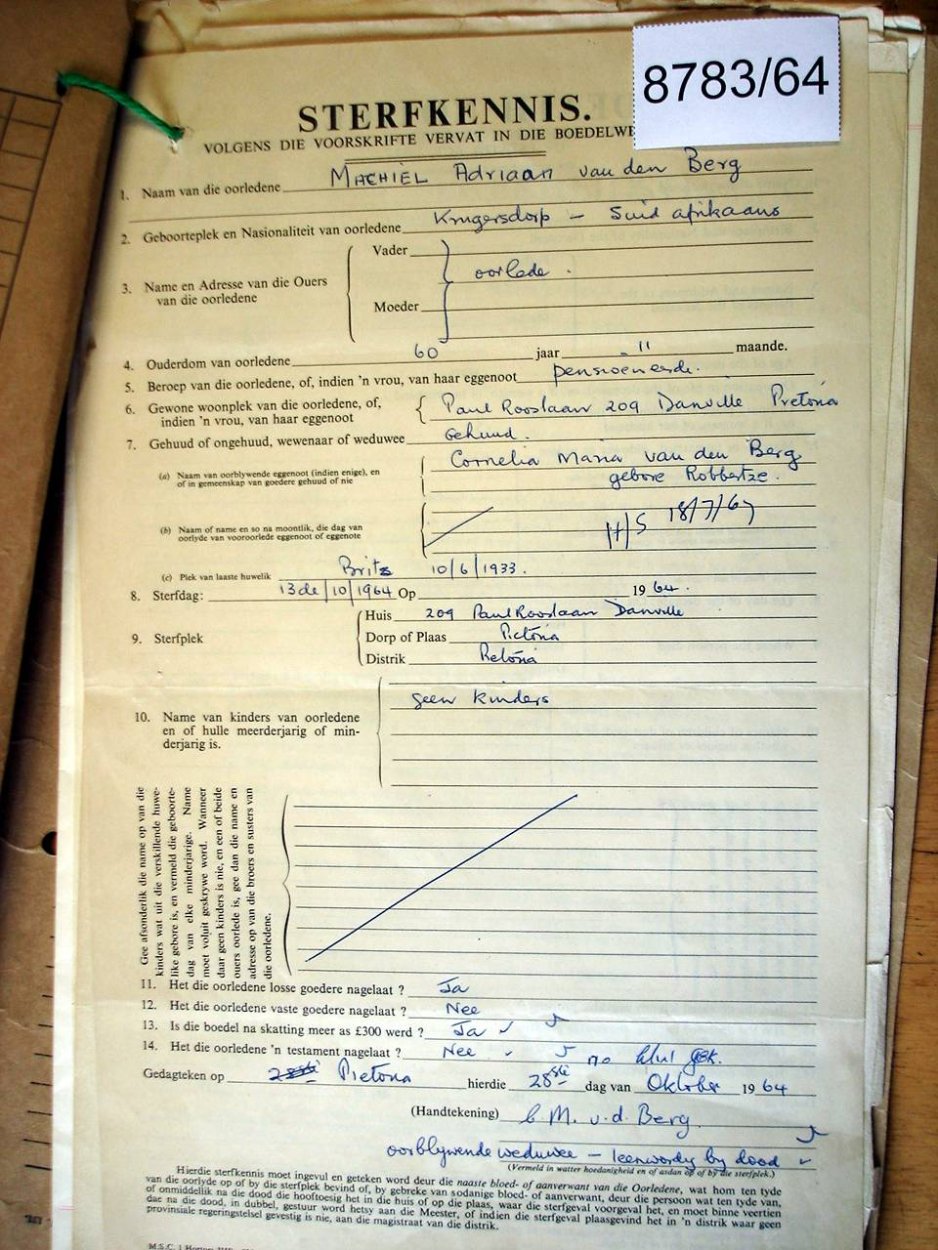 8783/64
STERFKENNIS.
VOLGENS DIE VOORSKRIFTE VERVAT IN DIE BOEDELWE
1. Naam van die oorledene MACHIEL Adriaan van den Berg
2. Geboorteplek en Nasionaliteit van oorledene Krugersdorp – Suid afrikaans
Vader
3. Name en Adresse van die Ouers van die oorledene oorlede.
Moeder
4. Ouderdom van oorledene 60 jaar 11 maande.
5. Beroep van die oorledene, of, indien 'n vrou, van haar eggenoot pensioenerde.
6. Gewone woonplek van die oorledene, of, indien 'n vrou, van haar eggenoot Paul Rooslaan 209 Danville Pretoria
7. Gehuud of ongehuud, wewenaar of weduwee Gehuud.
(a) Naam van oorblywende eggenoot (indien enige), en Cornelia Maria van den Berg
of in gemeenskap van goedere gehuud of nie gebore Robbertze.
(b) Naam of name en so na moontlik, die dag van
oorlyde van vooroorlede eggenoot of eggenote
H/S 18/7/67
(c) Plek van laaste huwelik Brits 10/6/1933.
8. Sterfdag: 13de/10/1964 Op 1964.
Huis 209 Paul Rooslaan Danville
9. Sterfplek Dorp of Plaas Pretoria
Distrik Pretoria
geen kinders
10. Name van kinders van oorledene
en of hulle meerderjarig of min-
derjarig is.
Gee afsonderlik die name op van die
kinders wat uit die verskillende huwe-
like gebore is, en vermeld die geboorte-
dag van elke minderjarige. Name
moet voluit geskrywe word. Wanneer
daar geen kinders is nie, en een of beide
ouers oorlede is, gee dan die name en
adresse op van die broers en susters van
die oorledene.
11. Het die oorledene losse goedere nagelaat ? Ja
12. Het die oorledene vaste goedere nagelaat ? Nee
13. Is die boedel na skatting meer as £300 werd ? Ja
14. Het die oorledene 'n testament nagelaat ? Nee no
Gedagteken op Pretoria hierdie 28ste dag van Oktober 1964
(Handtekening) C. M. v.d. Berg
oorblywende weduwee – teenwordig by dood
(Vermeld in watter hoedanigheid en of asdan op of by die sterfplek.)
Hierdie sterfkennis moet ingevul en geteken word deur die naaste bloed- of aanverwant van die Oorledene, wat hom ten tyde
van die oorlyde op of by die sterfplek bevind of, by gebreke van sodanige bloed- of aanverwant, deur die persoon wat ten tyde van,
of onmiddellik na die dood die hooftoesig het in die huis of op die plaas, waar die sterfgeval voorgeval het, en moet binne veertien
dae na die dood, in dubbel, gestuur word hetsy aan die Meester, of indien die sterfgeval plaasgevind het in 'n distrik waar geen
provinsiale regeringstelsel gevestig is nie, aan die magistraat van die distrik.